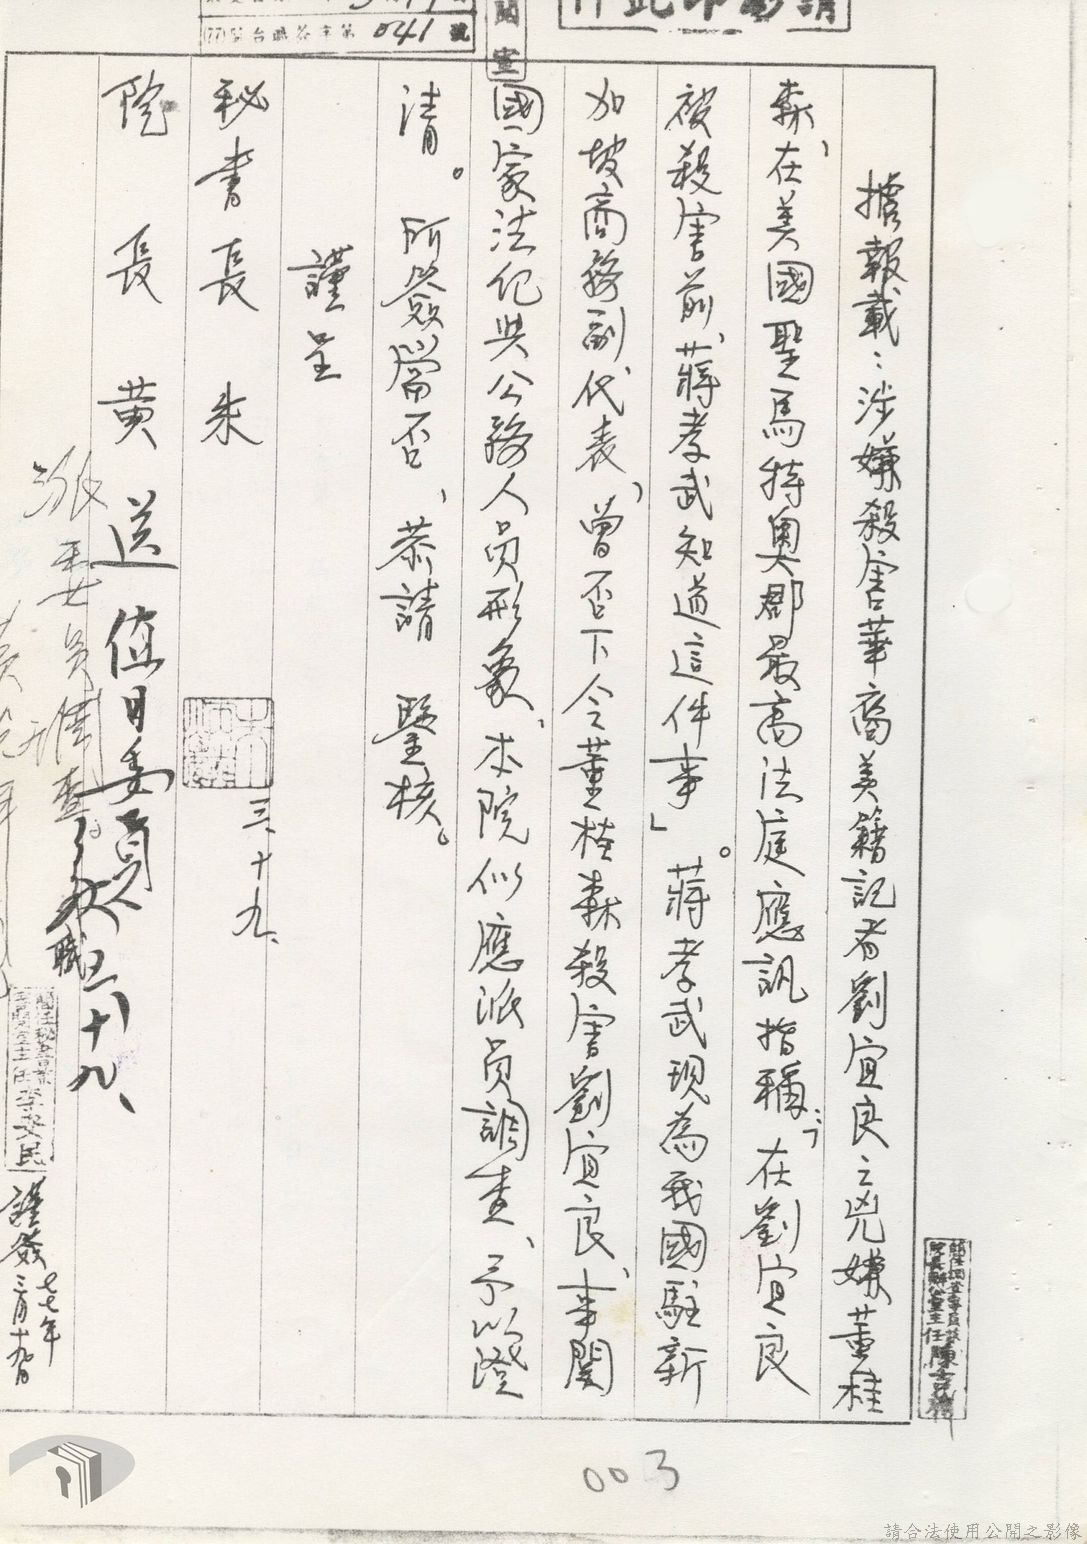 (77)院台職芬字第041號
聞室
據報載：涉嫌殺害華裔美籍記者劉宜良之兇嫌董桂
森、在美國聖馬特奧郡最高法庭應訊指稱：「在劉宜良
被殺害前、蔣孝武知道這件事」。蔣孝武現為我國駐新
加坡商務副代表、曾否下令董桂森殺害劉宜良、事關
國家法紀與公務人員形象、本院似應派員調查、予以澄
清。所簽當否、恭請 鑒核。
謹呈
秘書長 朱
院長 黃
三、十九、
送值日委員
三、十九、
職
李文民
謹簽
七七年
三月十九日
003
請合法使用公開之影像